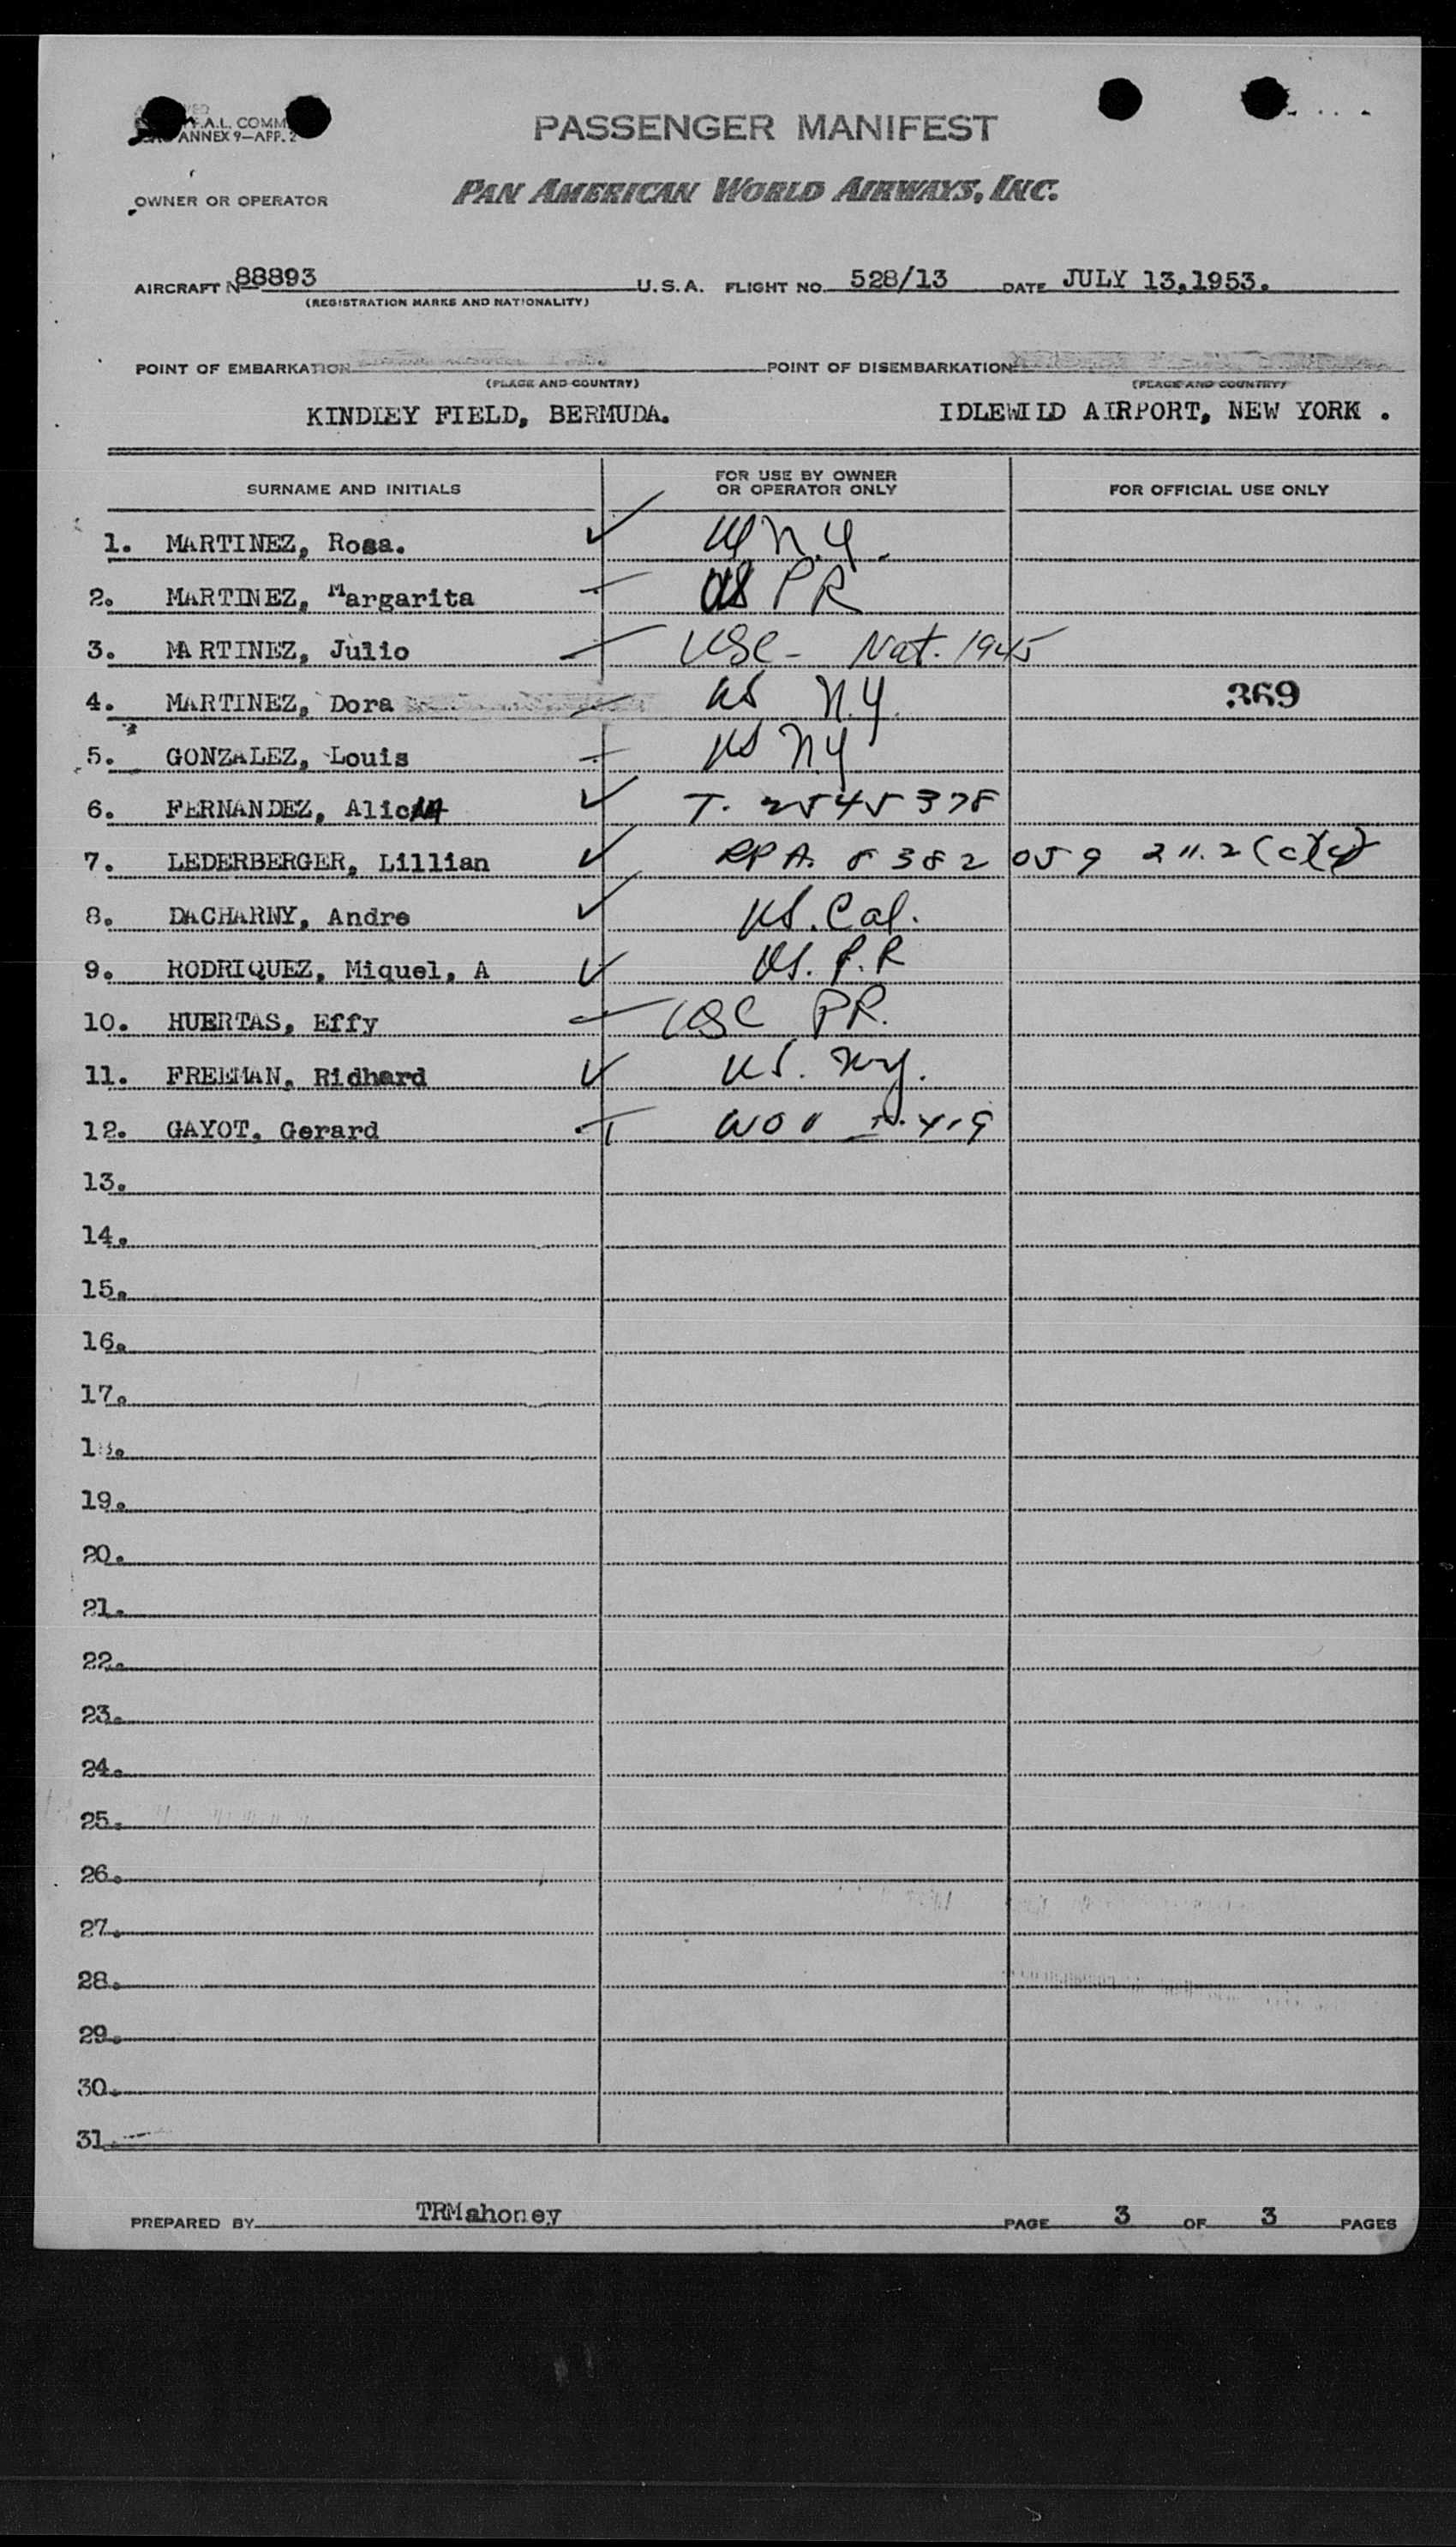 F.A.L. COMM
ANNEX 9—APP. 2
PASSENGER MANIFEST
OWNER OR OPERATOR PAN AMERICAN WORLD AIRWAYS, INC.
AIRCRAFT N 88893 U.S.A. FLIGHT NO. 528/13 DATE JULY 13,1953.
(REGISTRATION MARKS AND NATIONALITY)
POINT OF EMBARKATION POINT OF DISEMBARKATION
(PLACE AND COUNTRY) (PLACE AND COUNTRY)
KINDLEY FIELD, BERMUDA. IDLEWILD AIRPORT, NEW YORK .
SURNAME AND INITIALS FOR USE BY OWNER OR OPERATOR ONLY FOR OFFICIAL USE ONLY
1. MARTINEZ, Rosa. US N.Y.
2. MARTINEZ, Margarita US PR
3. MARTINEZ, Julio USC- Nat. 1945
4. MARTINEZ, Dora US N.Y. 369
5. GONZALEZ, Louis US NY
6. FERNANDEZ, Alicia T. 2545378
7. LEDERBERGER, Lillian RPA. 8382059 211.2(c)(4)
8. DACHARNY, Andre US. Cal.
9. RODRIQUEZ, Miquel, A US. P.R
10. HUERTAS, Effy USC PR.
11. FREEMAN, Ridhard US. NY.
12. GAYOT, Gerard
13.
14.
15.
16.
17.
18.
19.
20.
21.
22.
23.
24.
25.
26.
27.
28.
29.
30.
31.
PREPARED BY TRMahoney PAGE 3 OF 3 PAGES